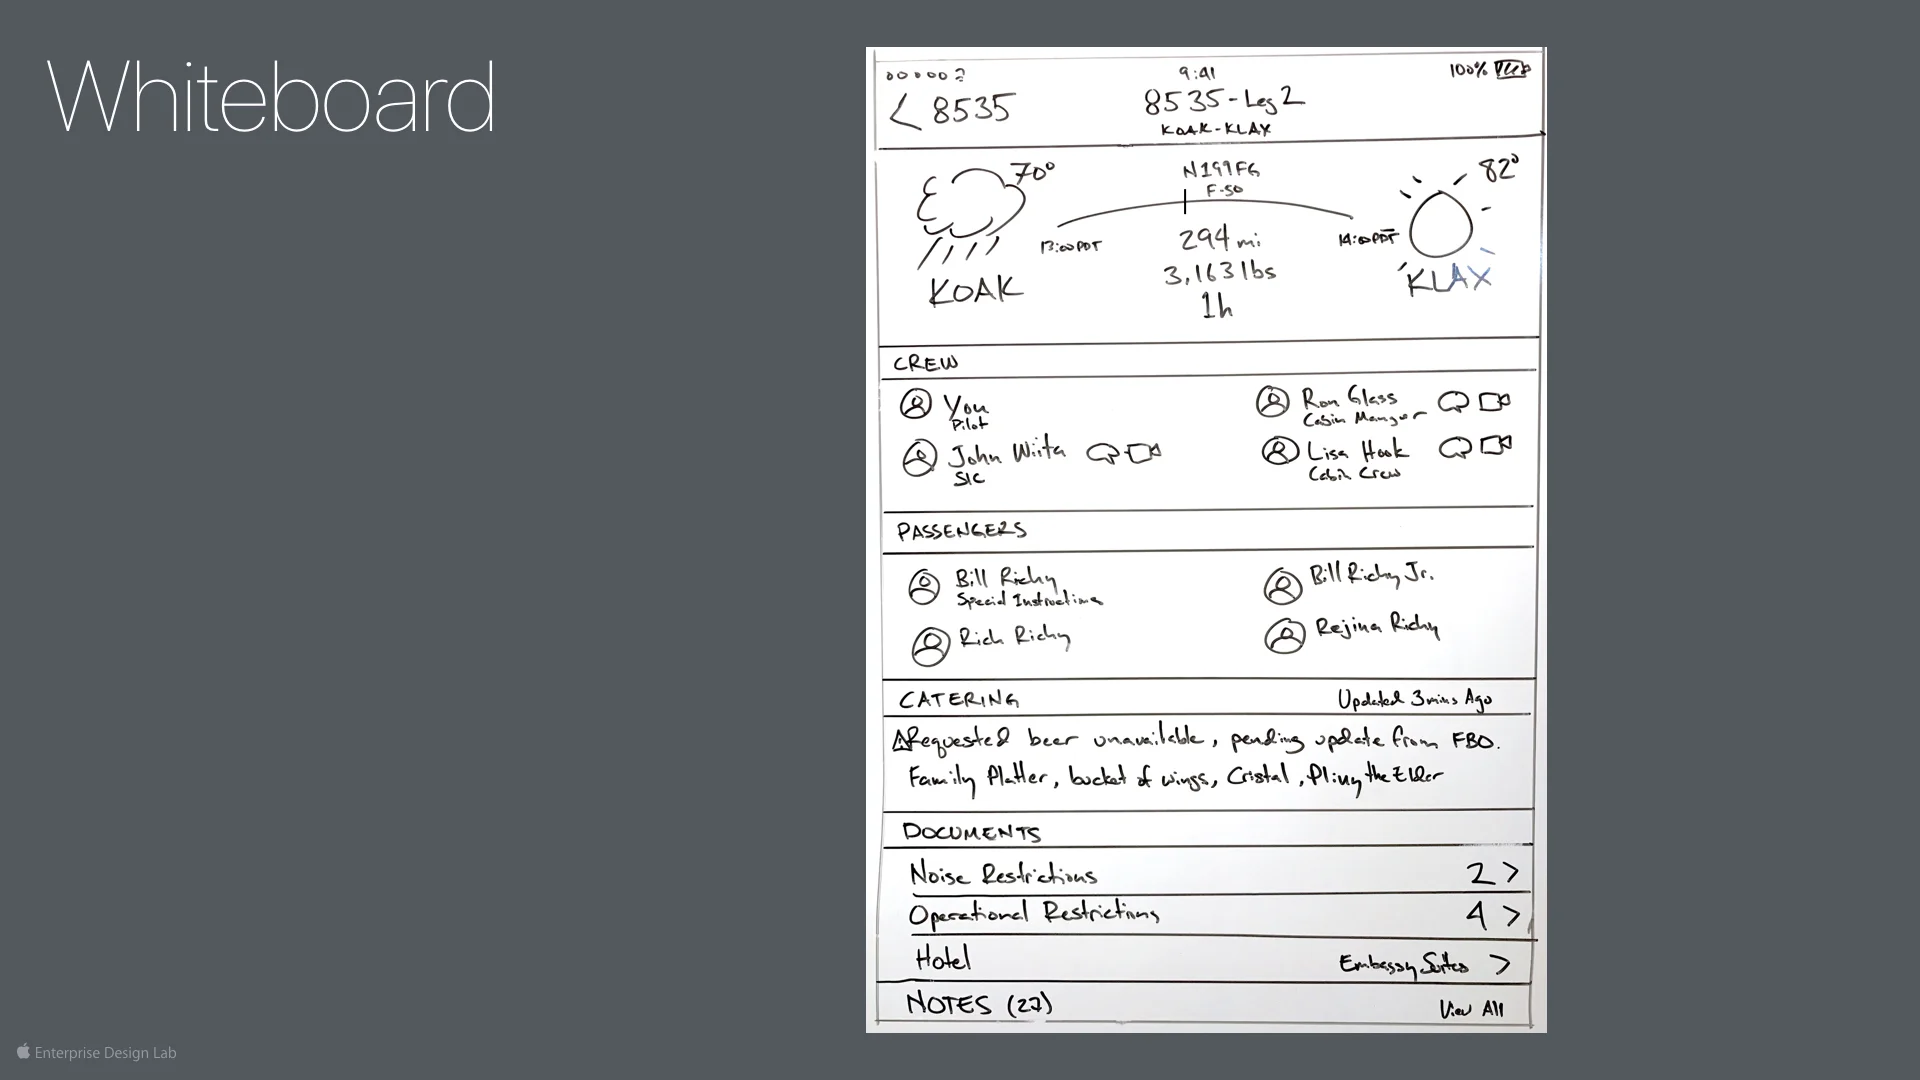 Whiteboard
9:41
100%
< 8535
8535 - Leg 2
KOAK - KLAX
70°
N199FG
F-50
82°
13:00 PDT
294 mi
14:00 PDT
3,163 lbs
1h
KOAK
KLAX
CREW
You
Pilot
Ron Glass
Cabin Manger
John Wiita
SIC
Lisa Hook
Cabin Crew
PASSENGERS
Bill Richy
Special Instructions
Bill Richy Jr.
Rich Richy
Rejina Richy
CATERING
Updated 3 mins Ago
Requested beer unavailable, pending update from FBO.
Family Platter, bucket of wings, Cristal, Pliny the Elder
DOCUMENTS
Noise Restrictions 2 >
Operational Restrictions 4 >
Hotel Embassy Suites >
NOTES (27) View All
Enterprise Design Lab